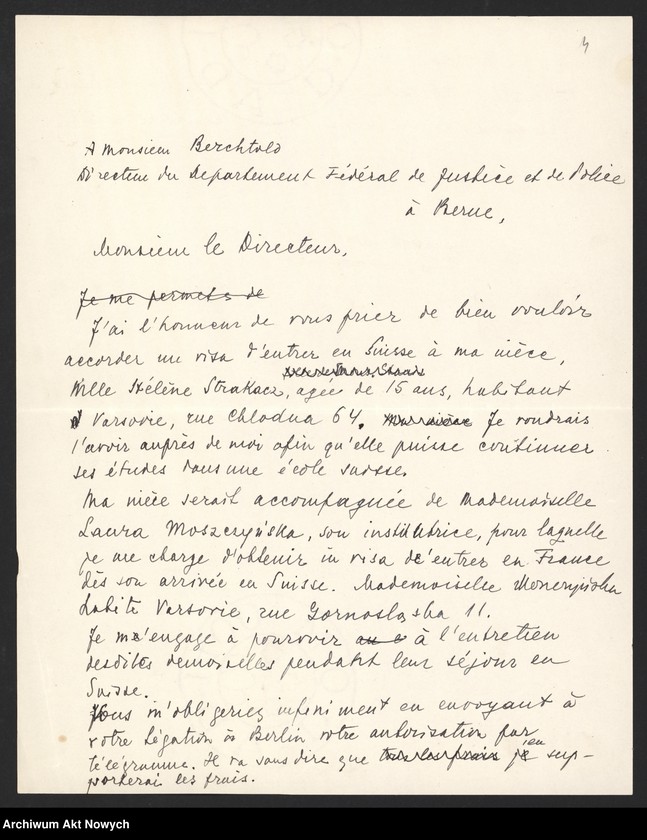 4
A Monsieur Berchtold
Directeur du Departement Fédéral de Justice et de Police
à Berne,
Monsieur le Directeur,
Je me permets de
J'ai l'honneur de vous prier de bien vouloir
accorder un visa d'entrer en Suisse à ma nièce,
Mlle Hélène Strakacz, agée de 15 ans, habitant
Varsovie, rue Chlodna 64. Je voudrais
l'avoir auprès de moi afin qu'elle puisse continuer
ses études dans une école suisse.
Ma nièce serait accompagnée de Mademoiselle
Laura Moszczyńska, son institutrice, pour laquelle
je me charge d'obtenir un visa d'entrer en France
dès son arrivée en Suisse. Mademoiselle Moszczyńska
habite Varsovie, rue Gornoslaska 11.
Je m'engage à pourvoir à l'entretien
desdites demoiselles pendant leur séjour en
Suisse.
Vous m'obligeriez infiniment en envoyant à
votre Légation à Berlin votre autorisation par
télégramme. Il va sans dire que tous les frais j'en sup-
porterai les frais.
Archiwum Akt Nowych